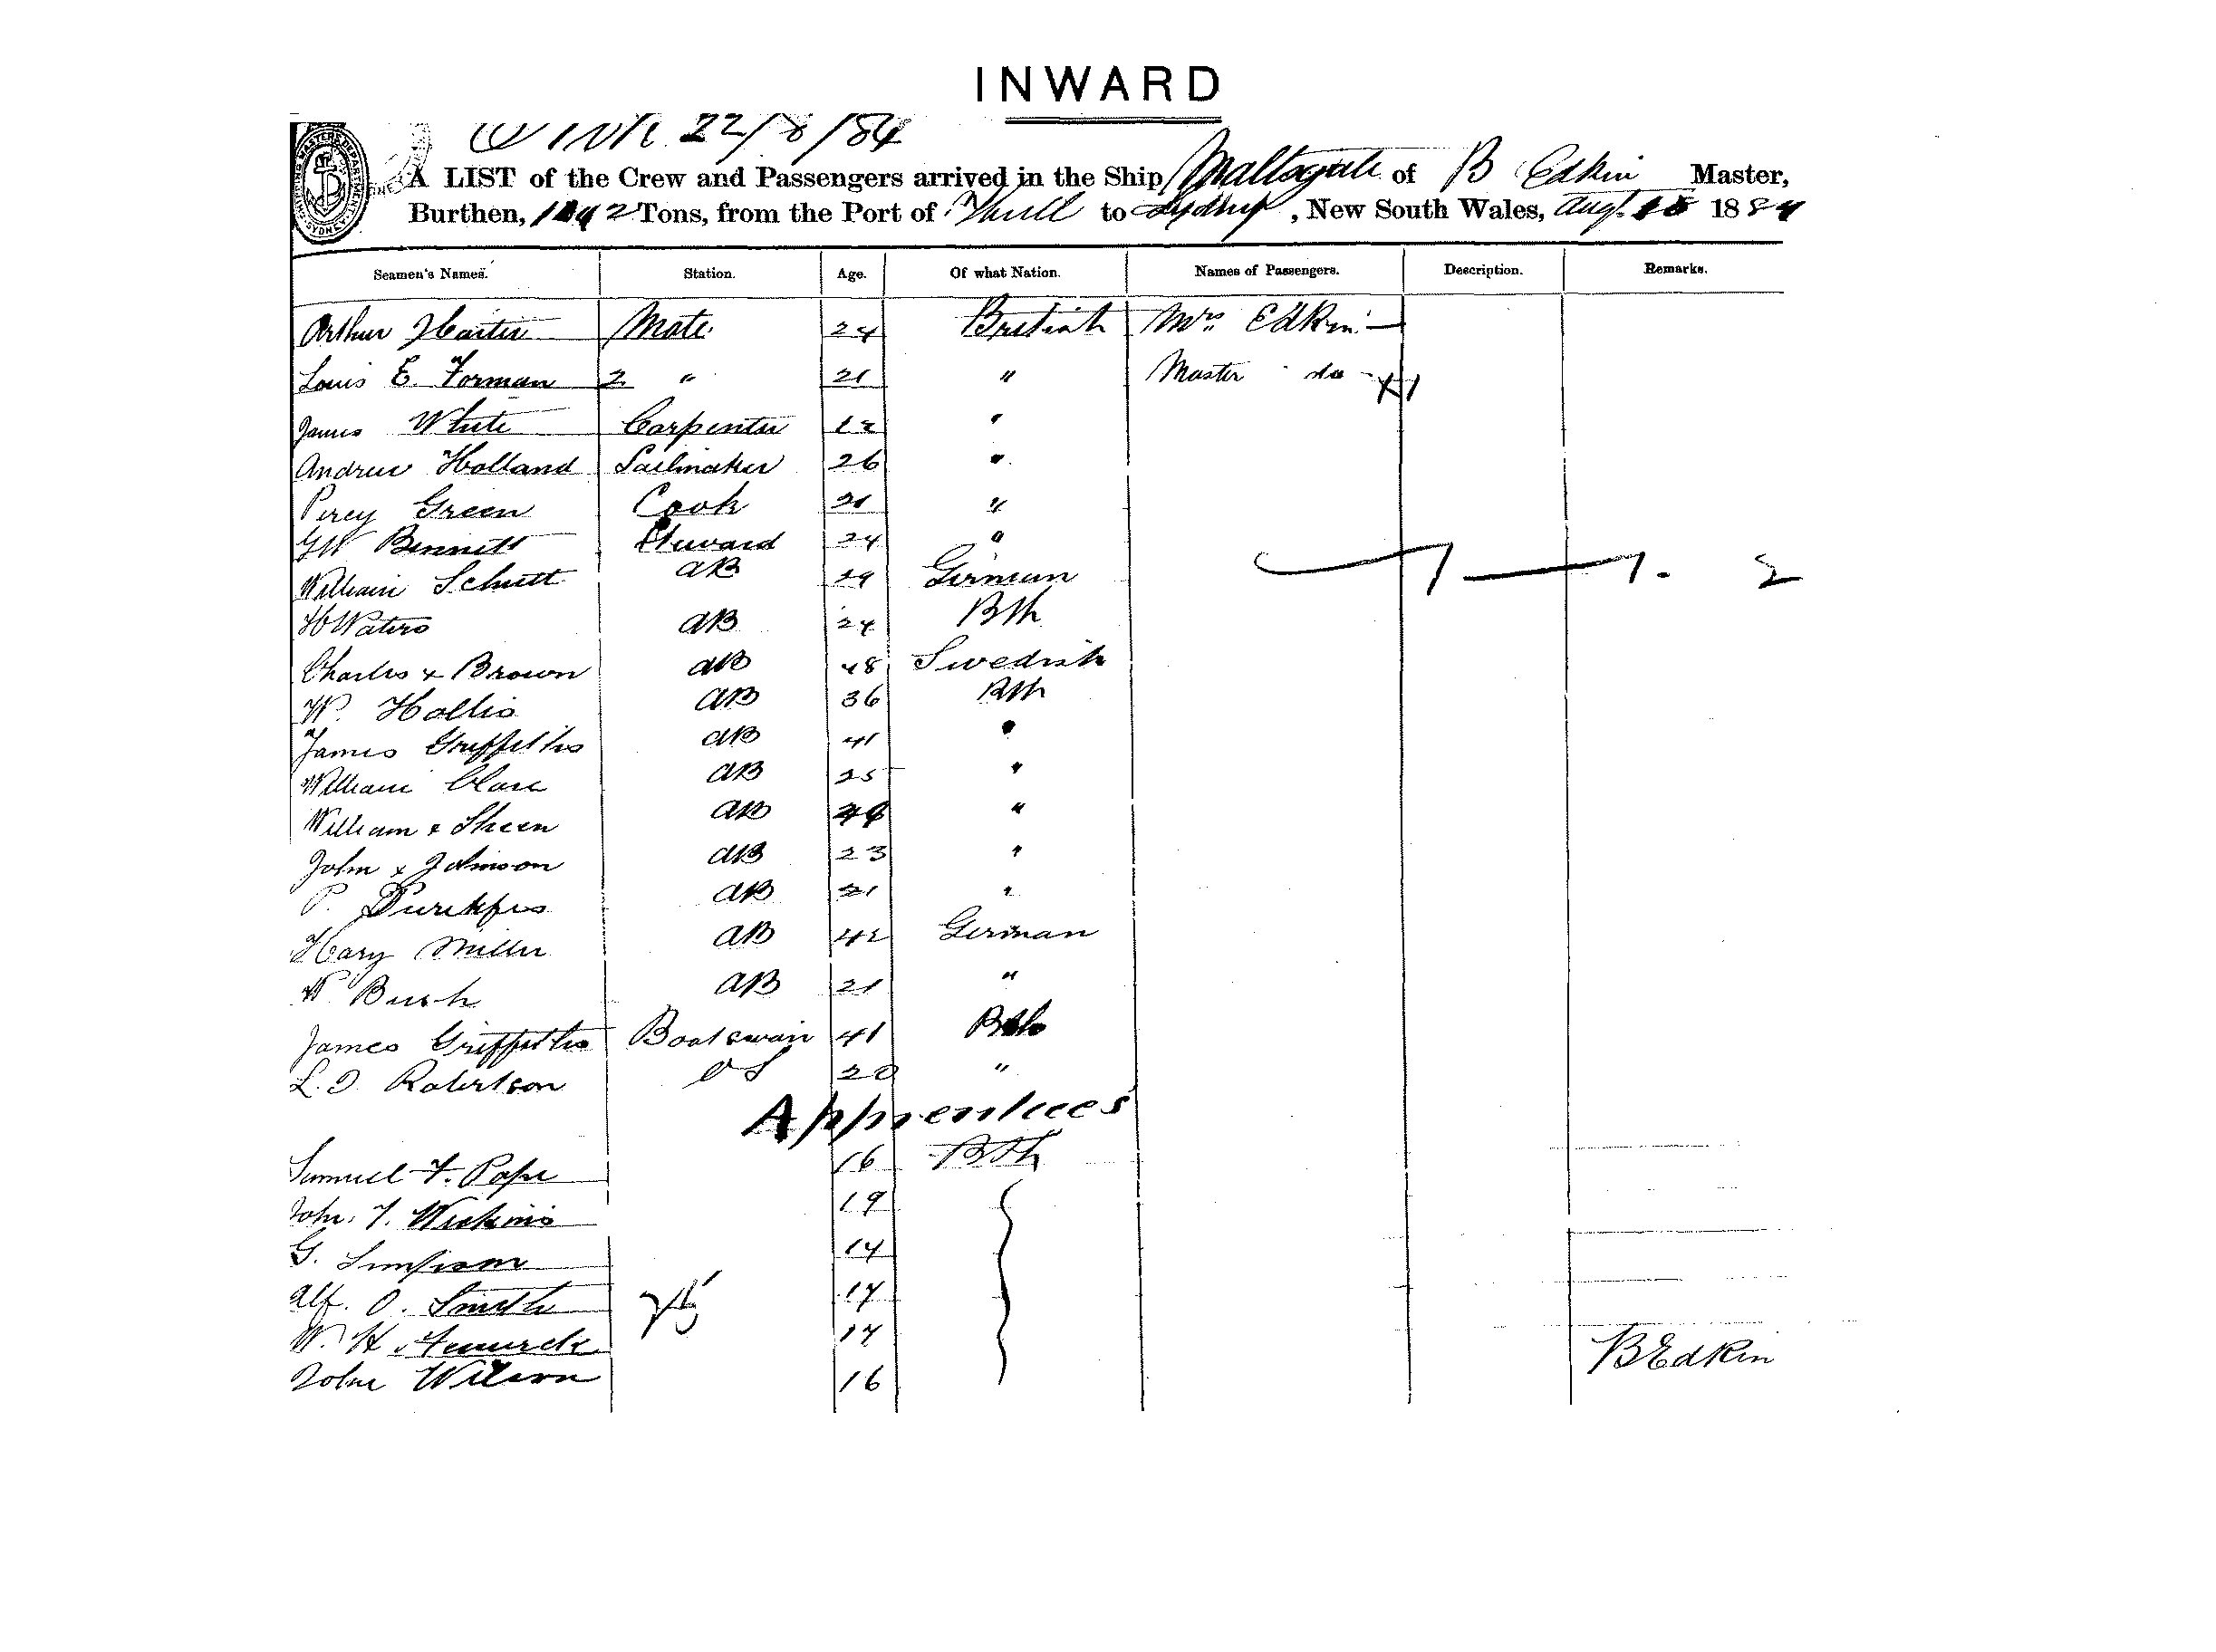 INWARD
22/8/84
A LIST of the Crew and Passengers arrived in the Ship of B Edkin Master,
Burthen, Tons, from the Port of Hull to Sydney, New South Wales, Augt. 1884
Seamen's Names. Station. Age. Of what Nation. Names of Passengers. Description. Remarks.
Arthur Mate 24 British Mrs Edkin
Louis E. Forman 2 " 21 " Master do
James White Carpenter "
Andrew Holland Sailmaker 26 "
Percy Green Cook 21 "
GW Bennett Steward 24 "
William Schutt AB 29 German 2
H Waters AB 24 Bth
Charles x Brown AB 48 Swedish
W. Hollis AB 36 Bth
James Griffiths AB 41 "
William Clare AB 25 "
William x Sheen AB "
John x Johnson AB 23 "
P. AB 21 "
Harry Miller AB 42 German
W Bush AB 21 "
James Griffiths Boatswain 41 Bth
L. D. Robertson OS 20 "
Apprentices
Samuel F. Pope 16 Bth
John. T. 19
G. Simpson 14
Alf. O. Smith 17
W. H. 17
John Wilson 16
B Edkin